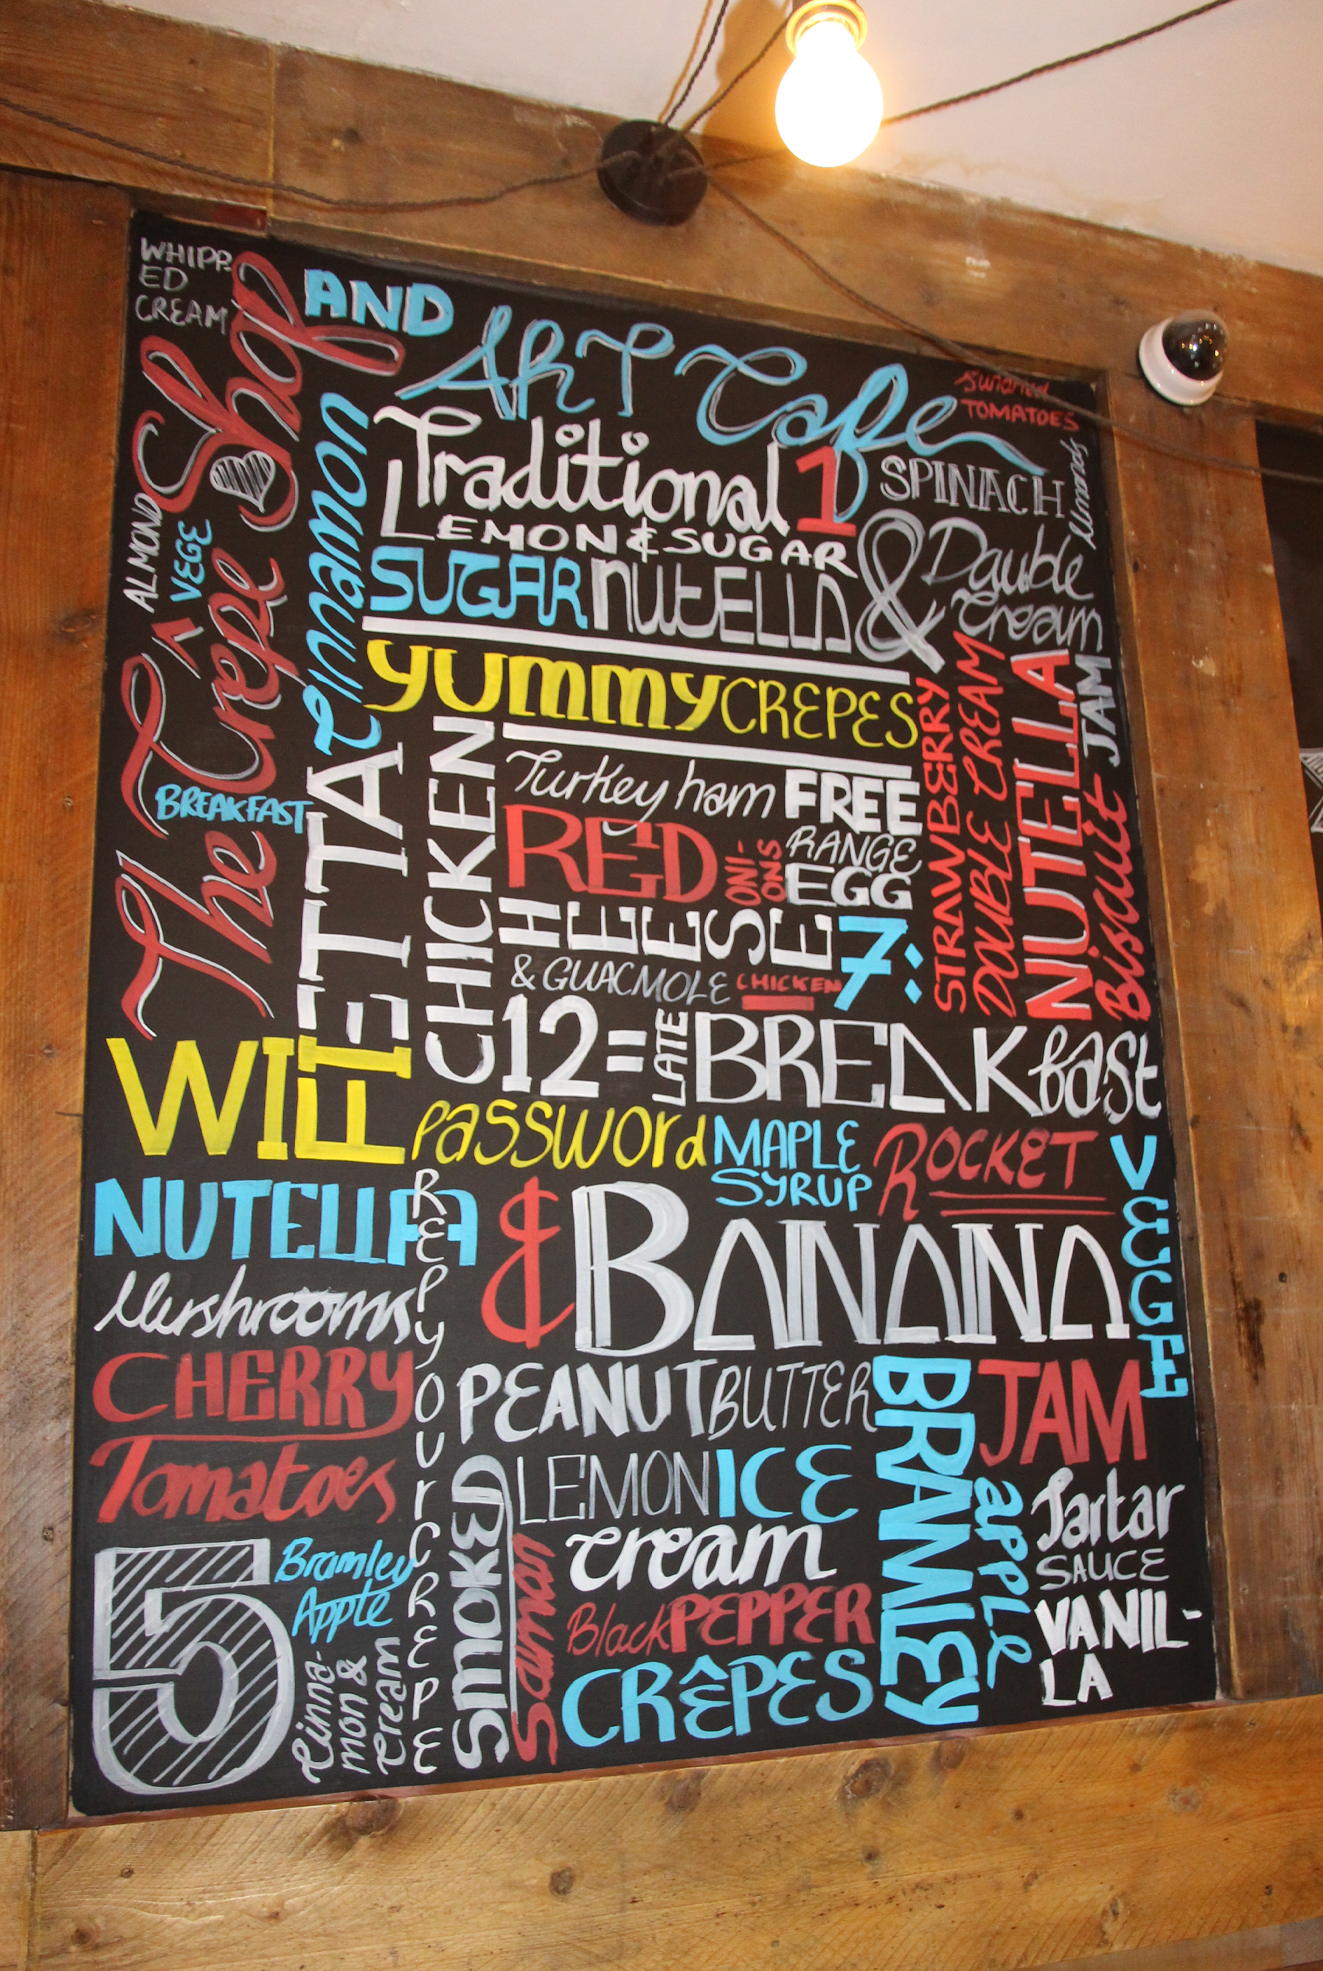 WHIPP-
ED
CREAM
The Crepe Shop
AND
Art Cafe
TOMATOES
ALMOND
VEGE
Cinnamon
Traditional 1
LEMON & SUGAR
SPINACH
SUGAR NUTELLA &
Double
Cream
YUMMY CREPES
BREAKFAST
FETTA
CHICKEN
Turkey ham
FREE
RANGE
EGG
RED
ONI-
ONS
CHEESE
7:
& GUACMOLE
CHICKEN
STRAWBERRY
DOUBLE CREAM
NUTELLA
JAM
Biscuit
12 = LATE BREAKfast
WIFI
PASSWORD
MAPLE
SYRUP
ROCKET
VEGE
NUTELLA
& BANANA
REPYOURCREPE
Mushrooms
CHERRY
Tomatoes
PEANUT BUTTER
BRAMLEY
apple
JAM
LEMON ICE
cream
SMOKED
Salmon
Black PEPPER
CRÊPES
Tartar
SAUCE
VANIL-
LA
5
Bramley
Apple
Cinna-
mon &
Cream